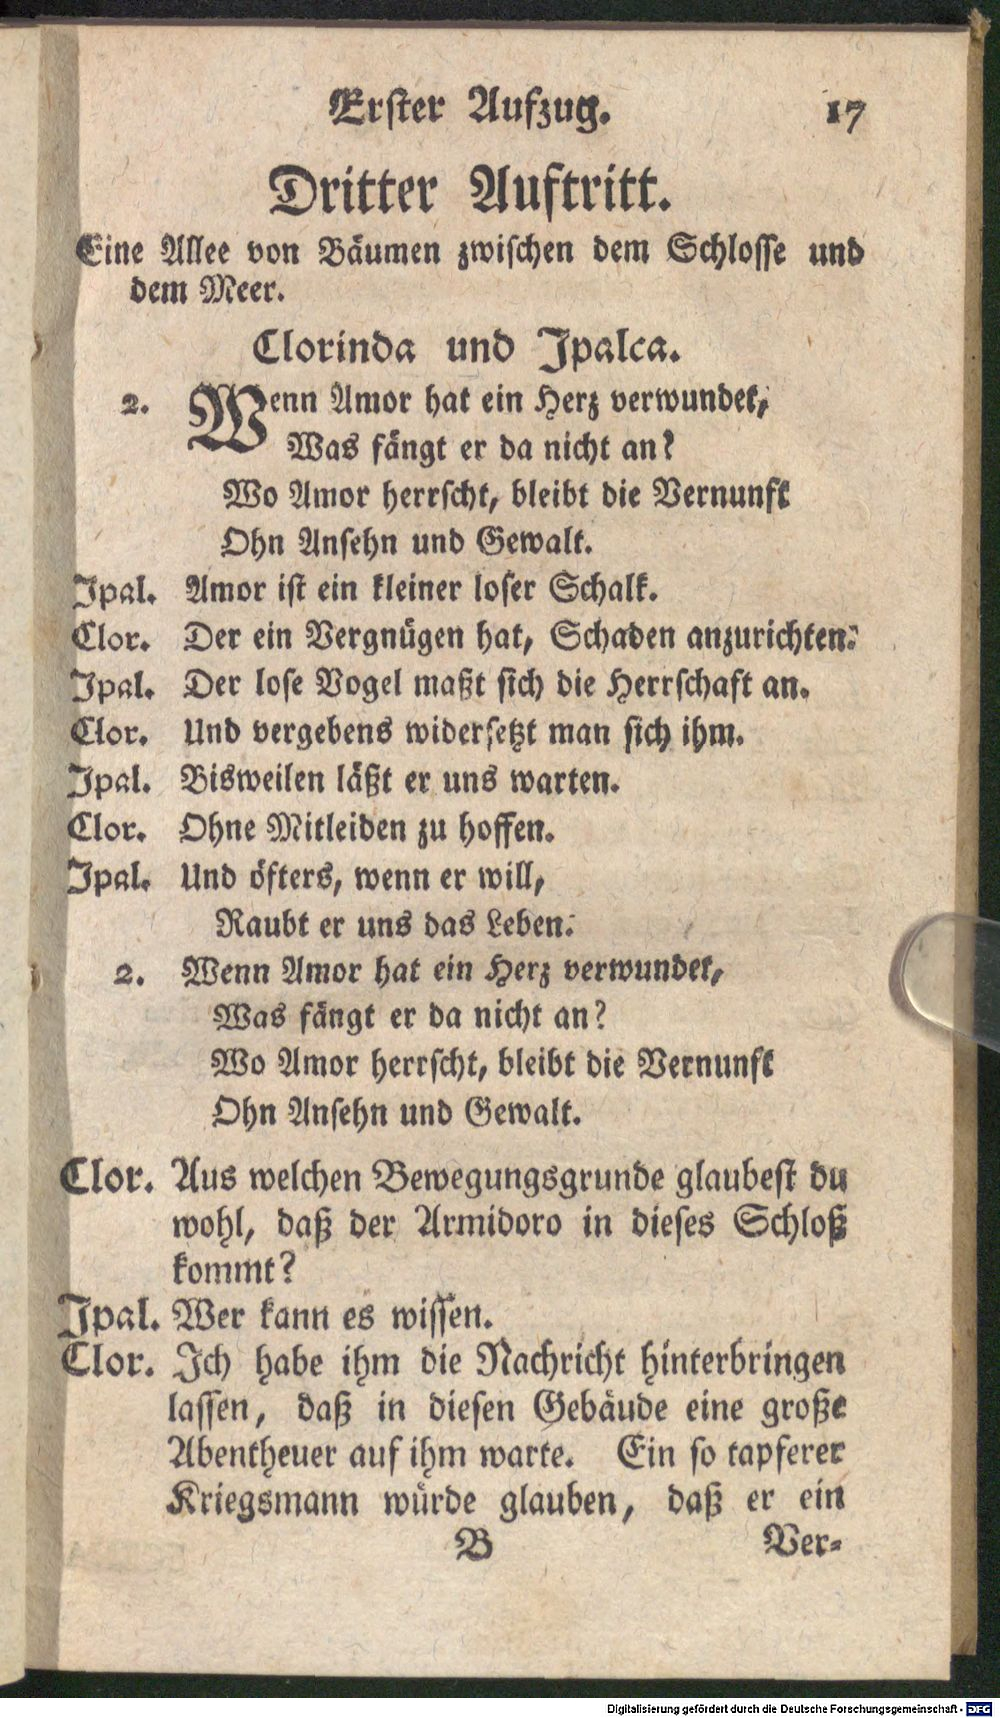 Erster Aufzug. 17
Dritter Auftritt.
Eine Allee von Bäumen zwischen dem Schlosse und
dem Meer.
Clorinda und Ipalca.
2. Wenn Amor hat ein Herz verwundet,
Was fängt er da nicht an?
Wo Amor herrscht, bleibt die Vernunft
Ohn Ansehn und Gewalt.
Ipal. Amor ist ein kleiner loser Schalk.
Clor. Der ein Vergnügen hat, Schaden anzurichten.
Ipal. Der lose Vogel maßt sich die Herrschaft an.
Clor. Und vergebens widersetzt man sich ihm.
Ipal. Bisweilen läßt er uns warten.
Clor. Ohne Mitleiden zu hoffen.
Ipal. Und öfters, wenn er will,
Raubt er uns das Leben.
2. Wenn Amor hat ein Herz verwundet,
Was fängt er da nicht an?
Wo Amor herrscht, bleibt die Vernunft
Ohn Ansehn und Gewalt.
Clor. Aus welchen Bewegungsgrunde glaubest du
wohl, daß der Armidoro in dieses Schloß
kommt?
Ipal. Wer kann es wissen.
Clor. Ich habe ihm die Nachricht hinterbringen
lassen, daß in diesen Gebäude eine große
Abentheuer auf ihm warte. Ein so tapferer
Kriegsmann würde glauben, daß er ein
B Ver-
Digitalisierung gefördert durch die Deutsche Forschungsgemeinschaft - DFG